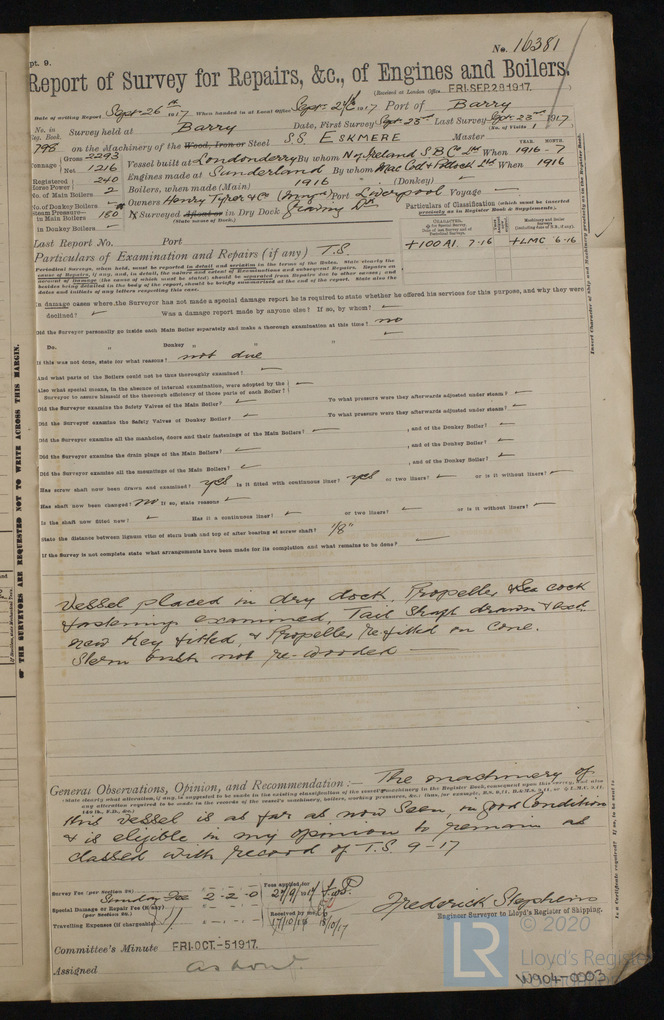 pt. 9.
No. 16381
Report of Survey for Repairs, &c., of Engines and Boilers.
(Received at London Office FRI.SEP.28 1917.)
Date of writing Report Sept. 26th 1917 When handed in at Local Office Sept. 1917 Port of Barry
No. in Reg. Book. Survey held at Barry Date, First Survey Sept. 23rd Last Survey Sept. 23rd 1917
(No. of Visits 1)
798 on the Machinery of the Wood, Iron or Steel S.S. ESKMERE Master
Tonnage Gross 2293
Net 1216
Vessel built at Londonderry By whom N. of Ireland S.B. Co. Ltd When 1916 - 7
YEAR. MONTH.
Registered Horse Power 240 Engines made at Sunderland By whom MacColl & Pollock Ltd When 1916
No. of Main Boilers 2 Boilers, when made (Main) 1916 (Donkey) —
No. of Donkey Boilers — Owners Henry Tyrer & Co Port Liverpool Voyage —
Steam Pressure in Main Boilers 180 If Surveyed Afloat or in Dry Dock Graving Dk
(State name of Dock.)
in Donkey Boilers —
Particulars of Classification (which must be inserted precisely as in Register Book & Supplements).
+100A1 7-16 +LMC 6-16
Last Report No. Port
Particulars of Examination and Repairs (if any) T.S.
In damage cases where the Surveyor has not made a special damage report he is required to state whether he offered his services for this purpose, and why they were
declined? — Was a damage report made by anyone else? If so, by whom? —
Did the Surveyor personally go inside each Main Boiler separately and make a thorough examination at this time? no
Do. " Donkey " " " —
If this was not done, state for what reasons? not due
And what parts of the Boilers could not be thus thoroughly examined? —
Also what special means, in the absence of internal examination, were adopted by the Surveyor to assure himself of the thorough efficiency of those parts of each Boiler? —
Did the Surveyor examine the Safety Valves of the Main Boiler? — To what pressure were they afterwards adjusted under steam? —
Did the Surveyor examine the Safety Valves of Donkey Boiler? — To what pressure were they afterwards adjusted under steam? —
Did the Surveyor examine all the manholes, doors and their fastenings of the Main Boilers? — , and of the Donkey Boiler? —
Did the Surveyor examine the drain plugs of the Main Boilers? — , and of the Donkey Boiler? —
Did the Surveyor examine all the mountings of the Main Boilers? — , and of the Donkey Boiler? —
Has screw shaft now been drawn and examined? yes Is it fitted with continuous liner? yes or two liners? — or is it without liners? —
Has shaft now been changed? no If so, state reasons —
Is the shaft now fitted new? — Has it a continuous liner? — or two liners? — or is it without liners? —
State the distance between lignum vitæ of stern bush and top of after bearing of screw shaft? 1/8"
If the Survey is not complete state what arrangements have been made for its completion and what remains to be done? —
Vessel placed in dry dock. Propeller & Sea cock
fastenings examined, Tail Shaft drawn &
new Key fitted, & Propeller refitted on cone.
Stern bush not re-wooded —
General Observations, Opinion, and Recommendation:— The machinery of
this vessel is as far as now seen, in good condition
& is eligible in my opinion to remain as
classed with record of T.S. 9-17
Survey Fee (per Section 28) 2-2-0 Fees applied for 27/9/1917
Sunday Fee
Special Damage or Repair Fee (if any) (per Section 28.)
Travelling Expenses (if chargeable) Received by me 17/10/17 18/10/17
Frederick Stephens
Engineer Surveyor to Lloyd's Register of Shipping.
Committee's Minute FRI.OCT.-5 1917.
Assigned as now
OF THE SURVEYORS ARE REQUESTED NOT TO WRITE ACROSS THIS MARGIN.
© 2020
LR Lloyd's Register
W904-0003